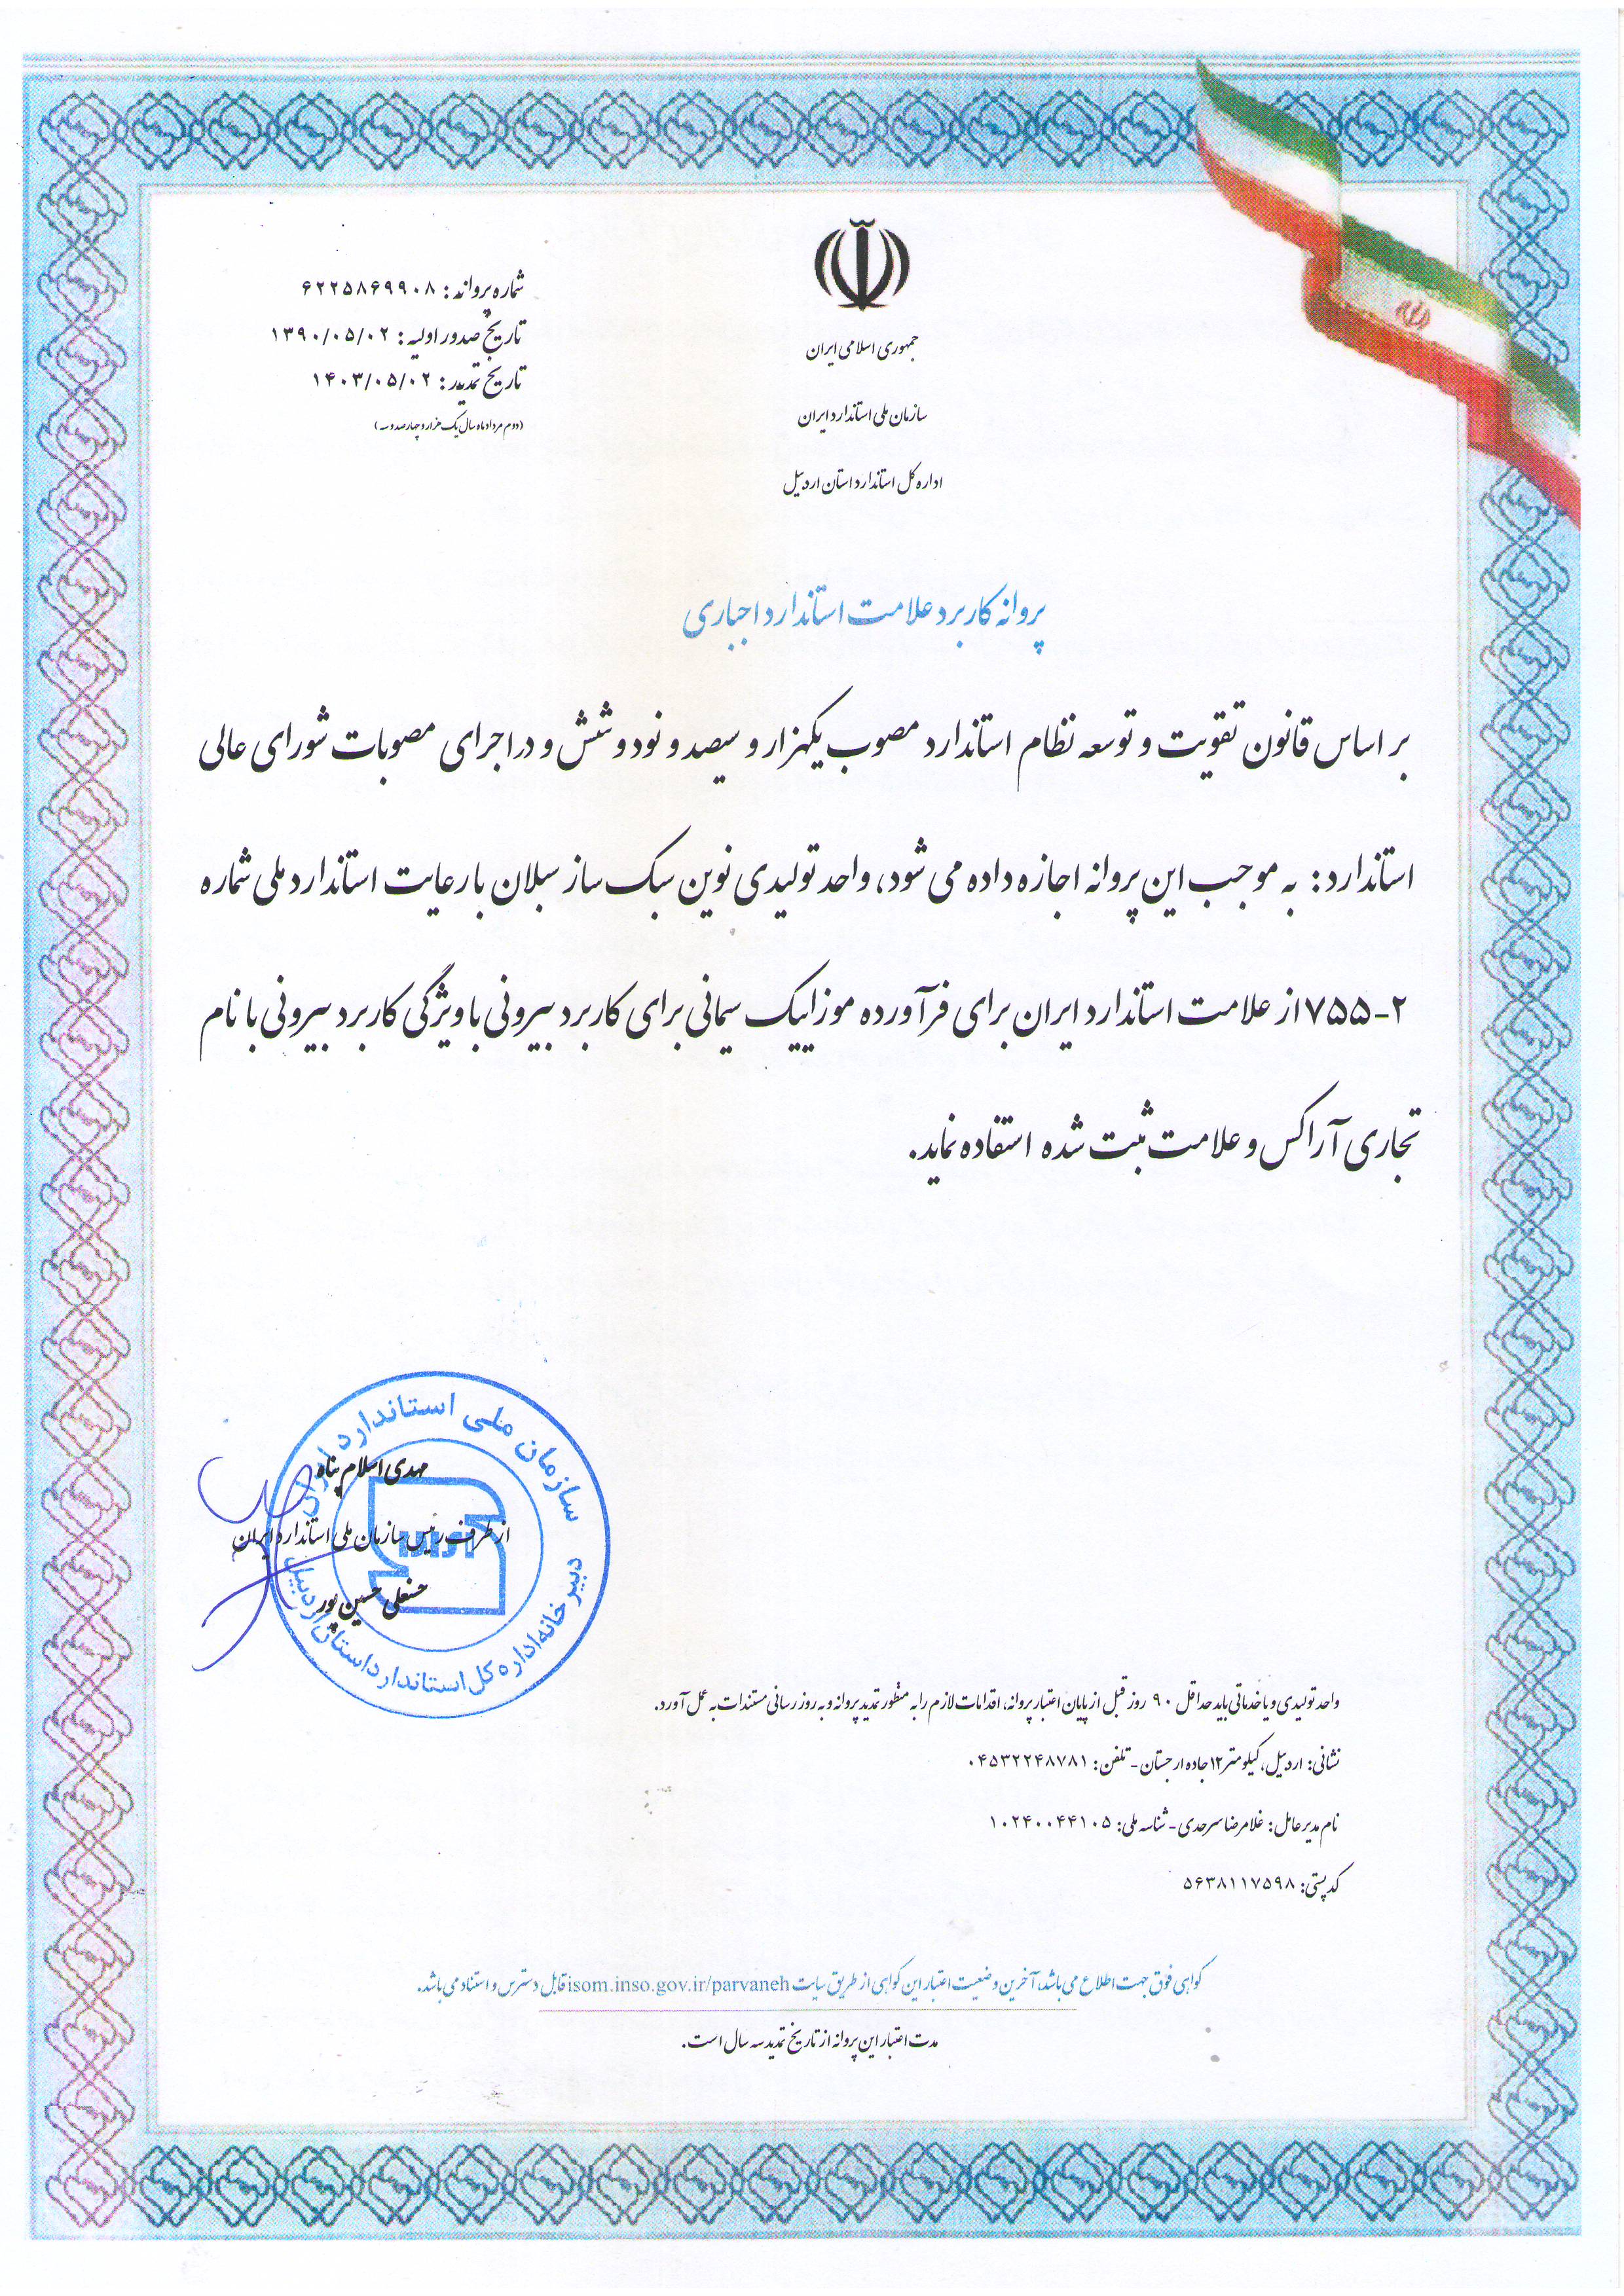 جمهوری اسلامی ایران
سازمان ملی استاندارد ایران
اداره کل استاندارد استان اردبیل
شماره پروانه: ۶۲۲۵۸۶۹۹۰۸
تاریخ صدور اولیه: ۱۳۹۰/۰۵/۰۲
تاریخ تمدید: ۱۴۰۳/۰۵/۰۲
(دوم مرداد ماه سال یک هزار و چهارصد و سه)
پروانه کاربرد علامت استاندارد اجباری
بر اساس قانون تقویت و توسعه نظام استاندارد مصوب یکهزار و سیصد و نود و شش و در اجرای مصوبات شورای عالی
استاندارد: به موجب این پروانه اجازه داده می شود، واحد تولیدی نوین سبک ساز سبلان با رعایت استاندارد ملی شماره
۷۵۵-۲ از علامت استاندارد ایران برای فرآورده موزاییک سیمانی برای کاربرد بیرونی با ویژگی کاربرد بیرونی با نام
تجاری آراکس و علامت ثبت شده استفاده نماید.
سازمان ملی استاندارد ایران
دبیرخانه اداره کل استاندارد استان اردبیل
مهدی اسلام پناه
از طرف رئیس سازمان ملی استاندارد ایران
حسنعلی حسین پور
واحد تولیدی و یا خدماتی باید حداقل ۹۰ روز قبل از پایان اعتبار پروانه، اقدامات لازم را به منظور تمدید پروانه و به روز رسانی مستندات به عمل آورد.
نشانی: اردبیل، کیلومتر ۱۲ جاده ارجستان - تلفن: ۰۴۵۳۲۲۴۸۷۸۱
نام مدیر عامل: غلامرضا سرحدی - شناسه ملی: ۱۰۲۴۰۰۴۴۱۰۵
کد پستی: ۵۶۳۸۱۱۷۵۹۸
گواهی فوق جهت اطلاع می باشد، آخرین وضعیت اعتبار این گواهی از طریق سایت isom.inso.gov.ir/parvaneh قابل دسترس و استناد می باشد.
مدت اعتبار این پروانه از تاریخ تمدید سه سال است.